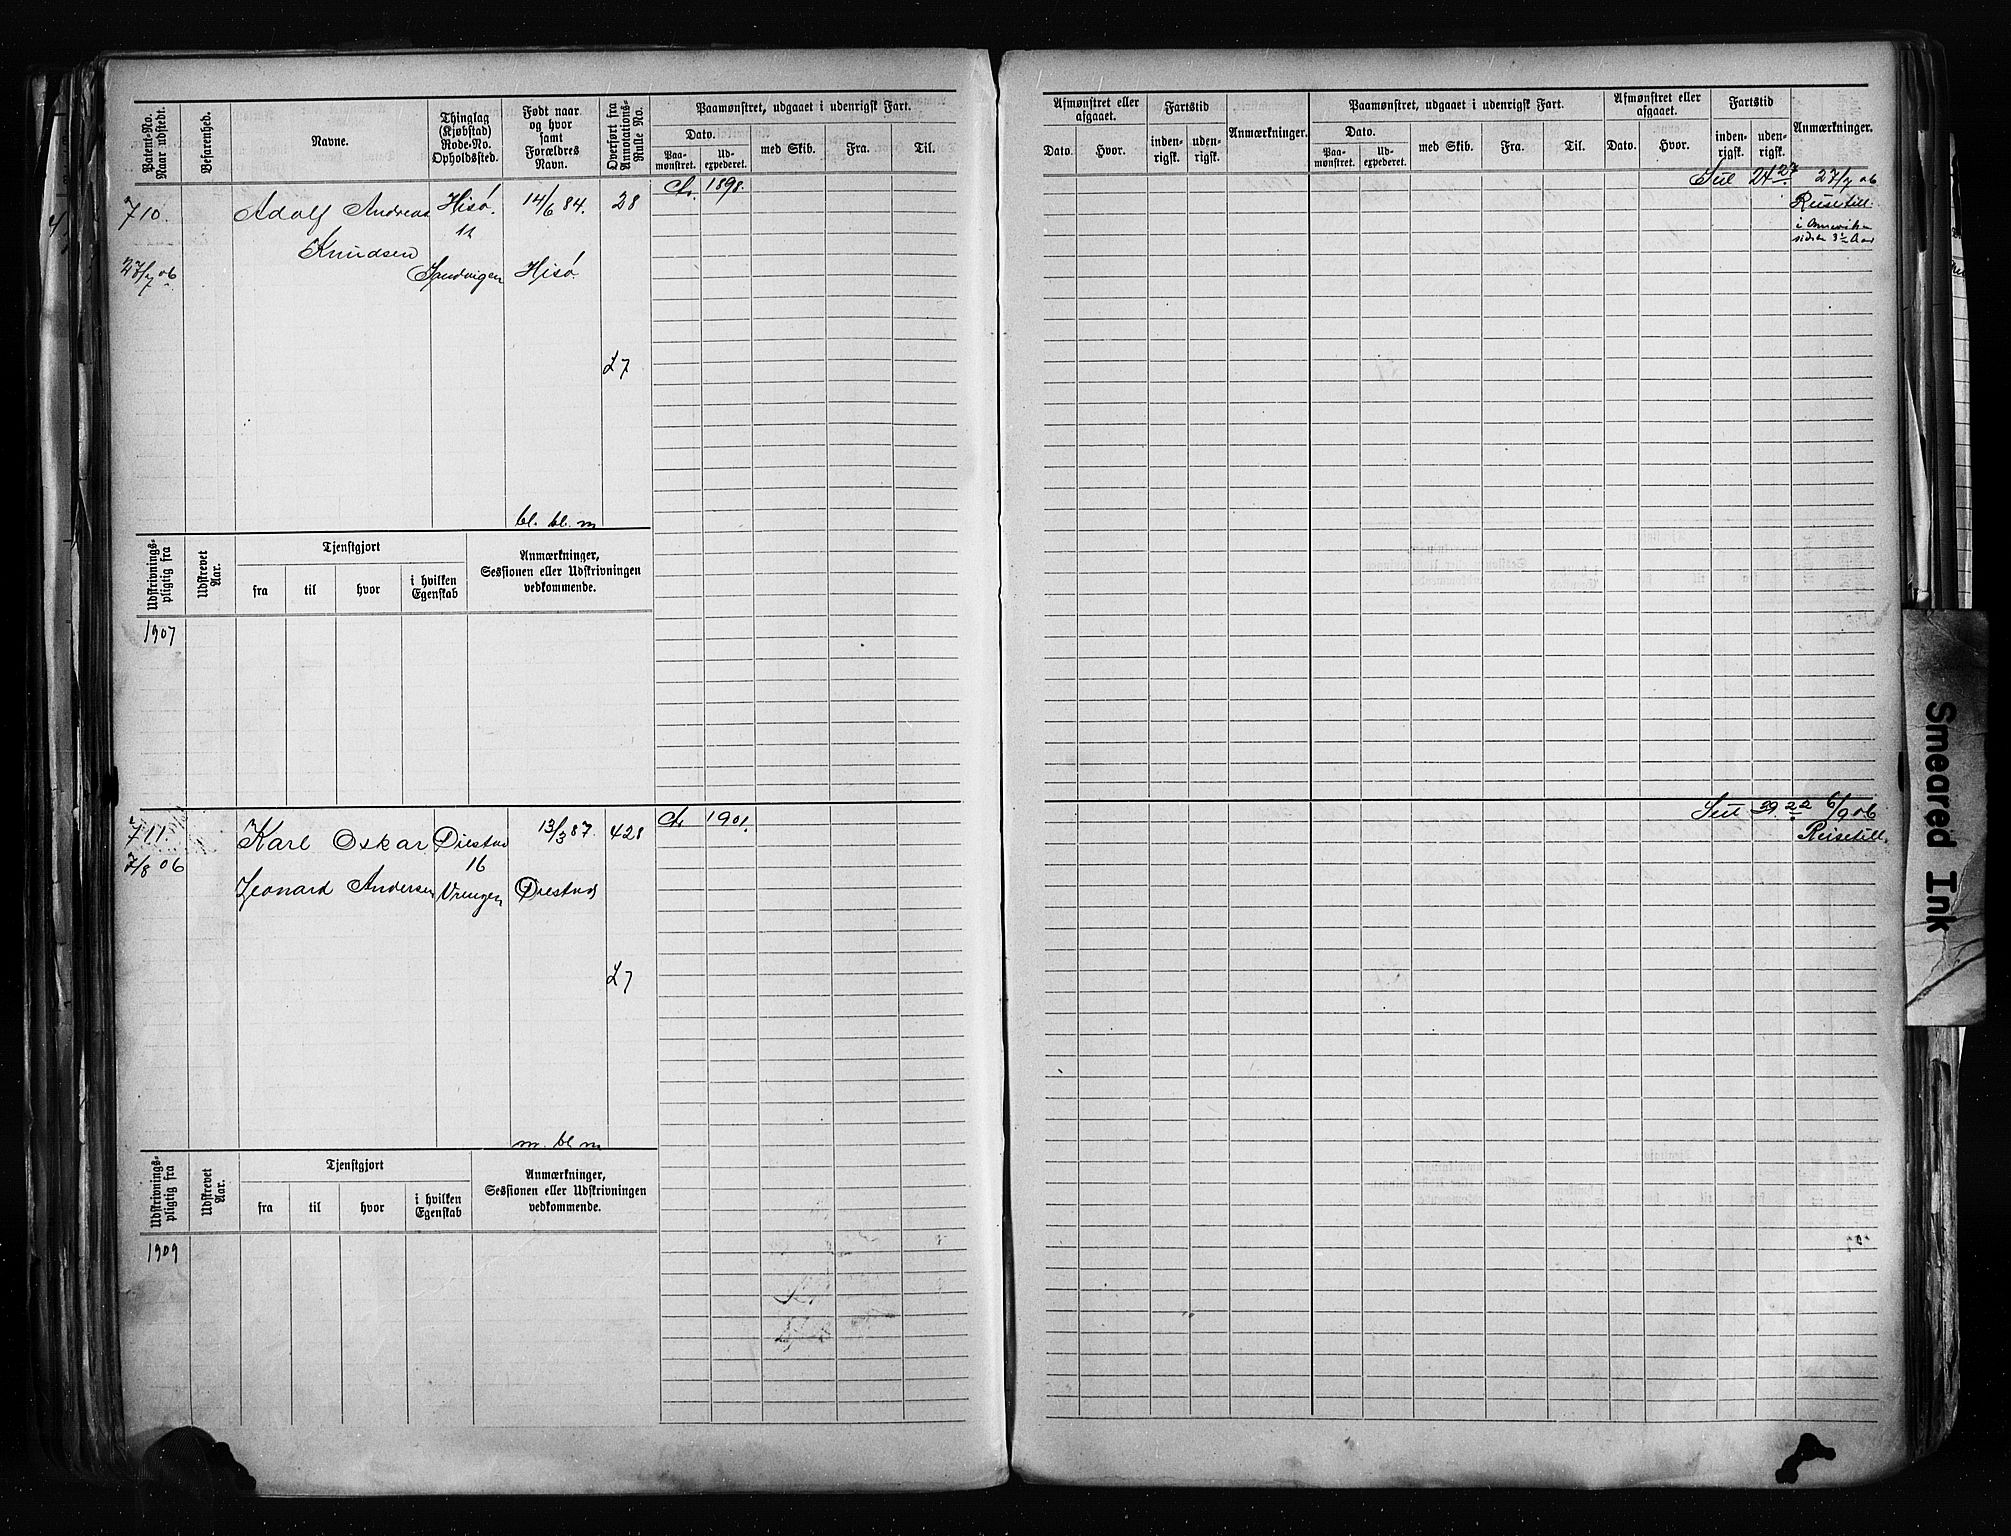 Patent-No. Naar udstedt.
Befarenhed.
Navne.
Thinglag (Kjøbstad) Rode-No. Opholdssted.
Født naar og hvor samt Forældres Navn.
Overført fra Annotations-Rulle No.
Paamønstret, udgaaet i udenrigsk Fart.
Dato.
Paa-mønstret.
Ud-expederet.
med Skib.
Fra.
Til.
710.
Adolf Andreas
Hisø.
14/6 84.
28
Ch. 1898.
11
Knudsen
27/7 06
Sandvigen
Hisø
L7
bl. bl. m
Udskrivnings-pligtig fra
Udskrevet Aar.
Tjenstgjort
fra
til
hvor
i hvilken Egenskab
Anmærkninger, Sessionen eller Udskrivningen vedkommende.
1907
711.
Karl Oskar
Øiestad
13/3 87.
428
Ch. 1901.
7/8 06
16
Leonard Andersen
Vrengen
Øiestad
L7
m. bl m
Udskrivnings-pligtig fra
Udskrevet Aar.
Tjenstgjort
fra
til
hvor
i hvilken Egenskab
Anmærkninger, Sessionen eller Udskrivningen vedkommende.
1909
Afmønstret eller afgaaet.
Dato.
Hvor.
Fartstid
inden-rigsk.
uden-rigsk.
Anmærkninger.
Paamønstret, udgaaet i udenrigsk Fart.
Dato.
Paa-mønstret.
Ud-expederet.
med Skib.
Fra.
Til.
Afmønstret eller afgaaet.
Dato.
Hvor.
Fartstid
inden-rigsk.
uden-rigsk.
Anmærkninger.
Seil 24 27
27/7 06
Reisetill.
i Amerika
siden 3½ Aar
Seil 39. 22
6/9 06
Reisetill.
Smeared Ink